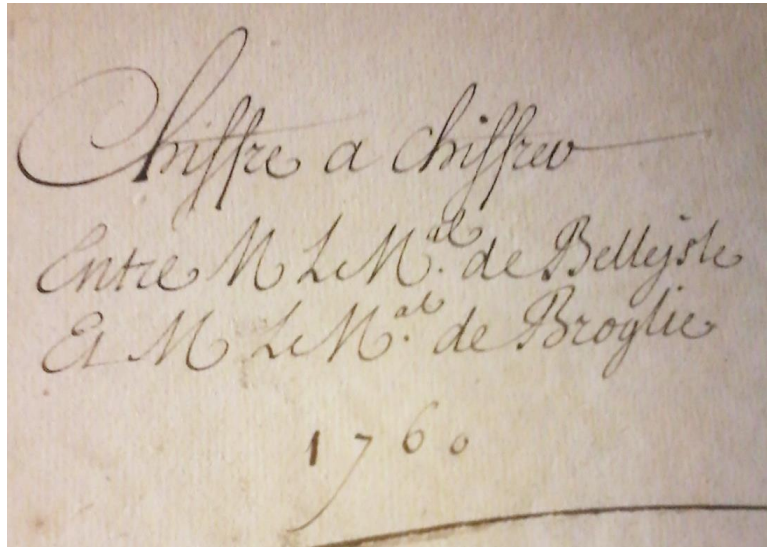 Chiffre a chiffrer
Entre M Le M.al de Bellejsle
Et M Le M.al de Broglie
1760